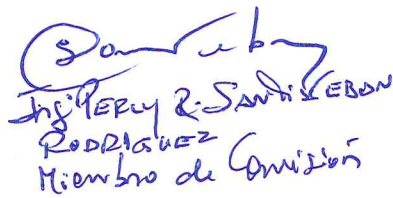 Ing° PERCY R. SANTISTEBAN
RODRIGUEZ
Miembro de Comisión